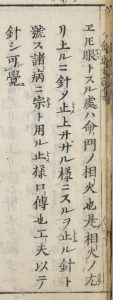 ヱ圧眼トスル處ハ命門ノ相火也是相火ノ亢
リ上ルニ針〆止上サガル様ニスルヲ止ル針ト
號ス諸病ニ宗ト用ル止様口傳也工夫以テ
針シ可覺